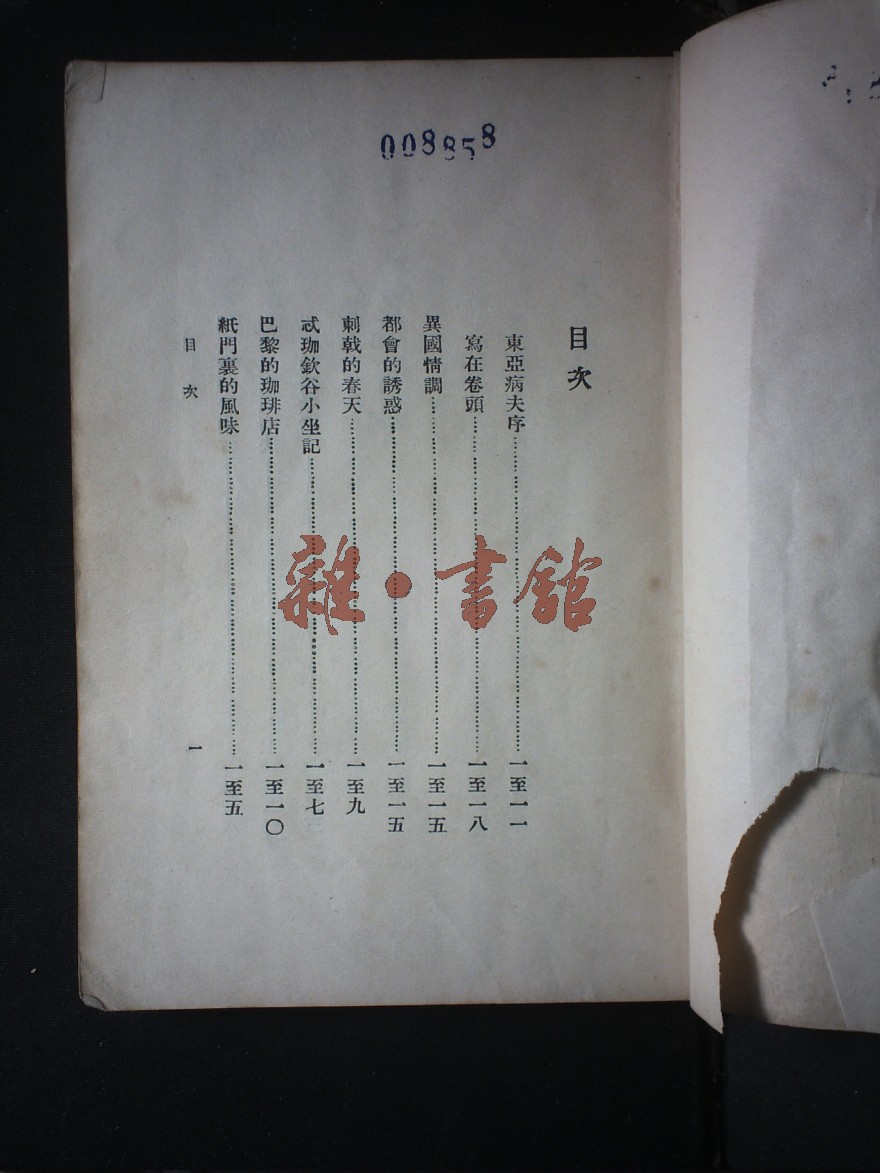 008858
目次
東亞病夫序……一至一一
寫在卷頭……一至一八
異國情調……一至一五
都會的誘惑……一至一五
刺戟的春天……一至九
忒珈欽谷小坐記……一至七
巴黎的珈琲店……一至一〇
紙門裏的風味……一至五
目次
一
雜·書館